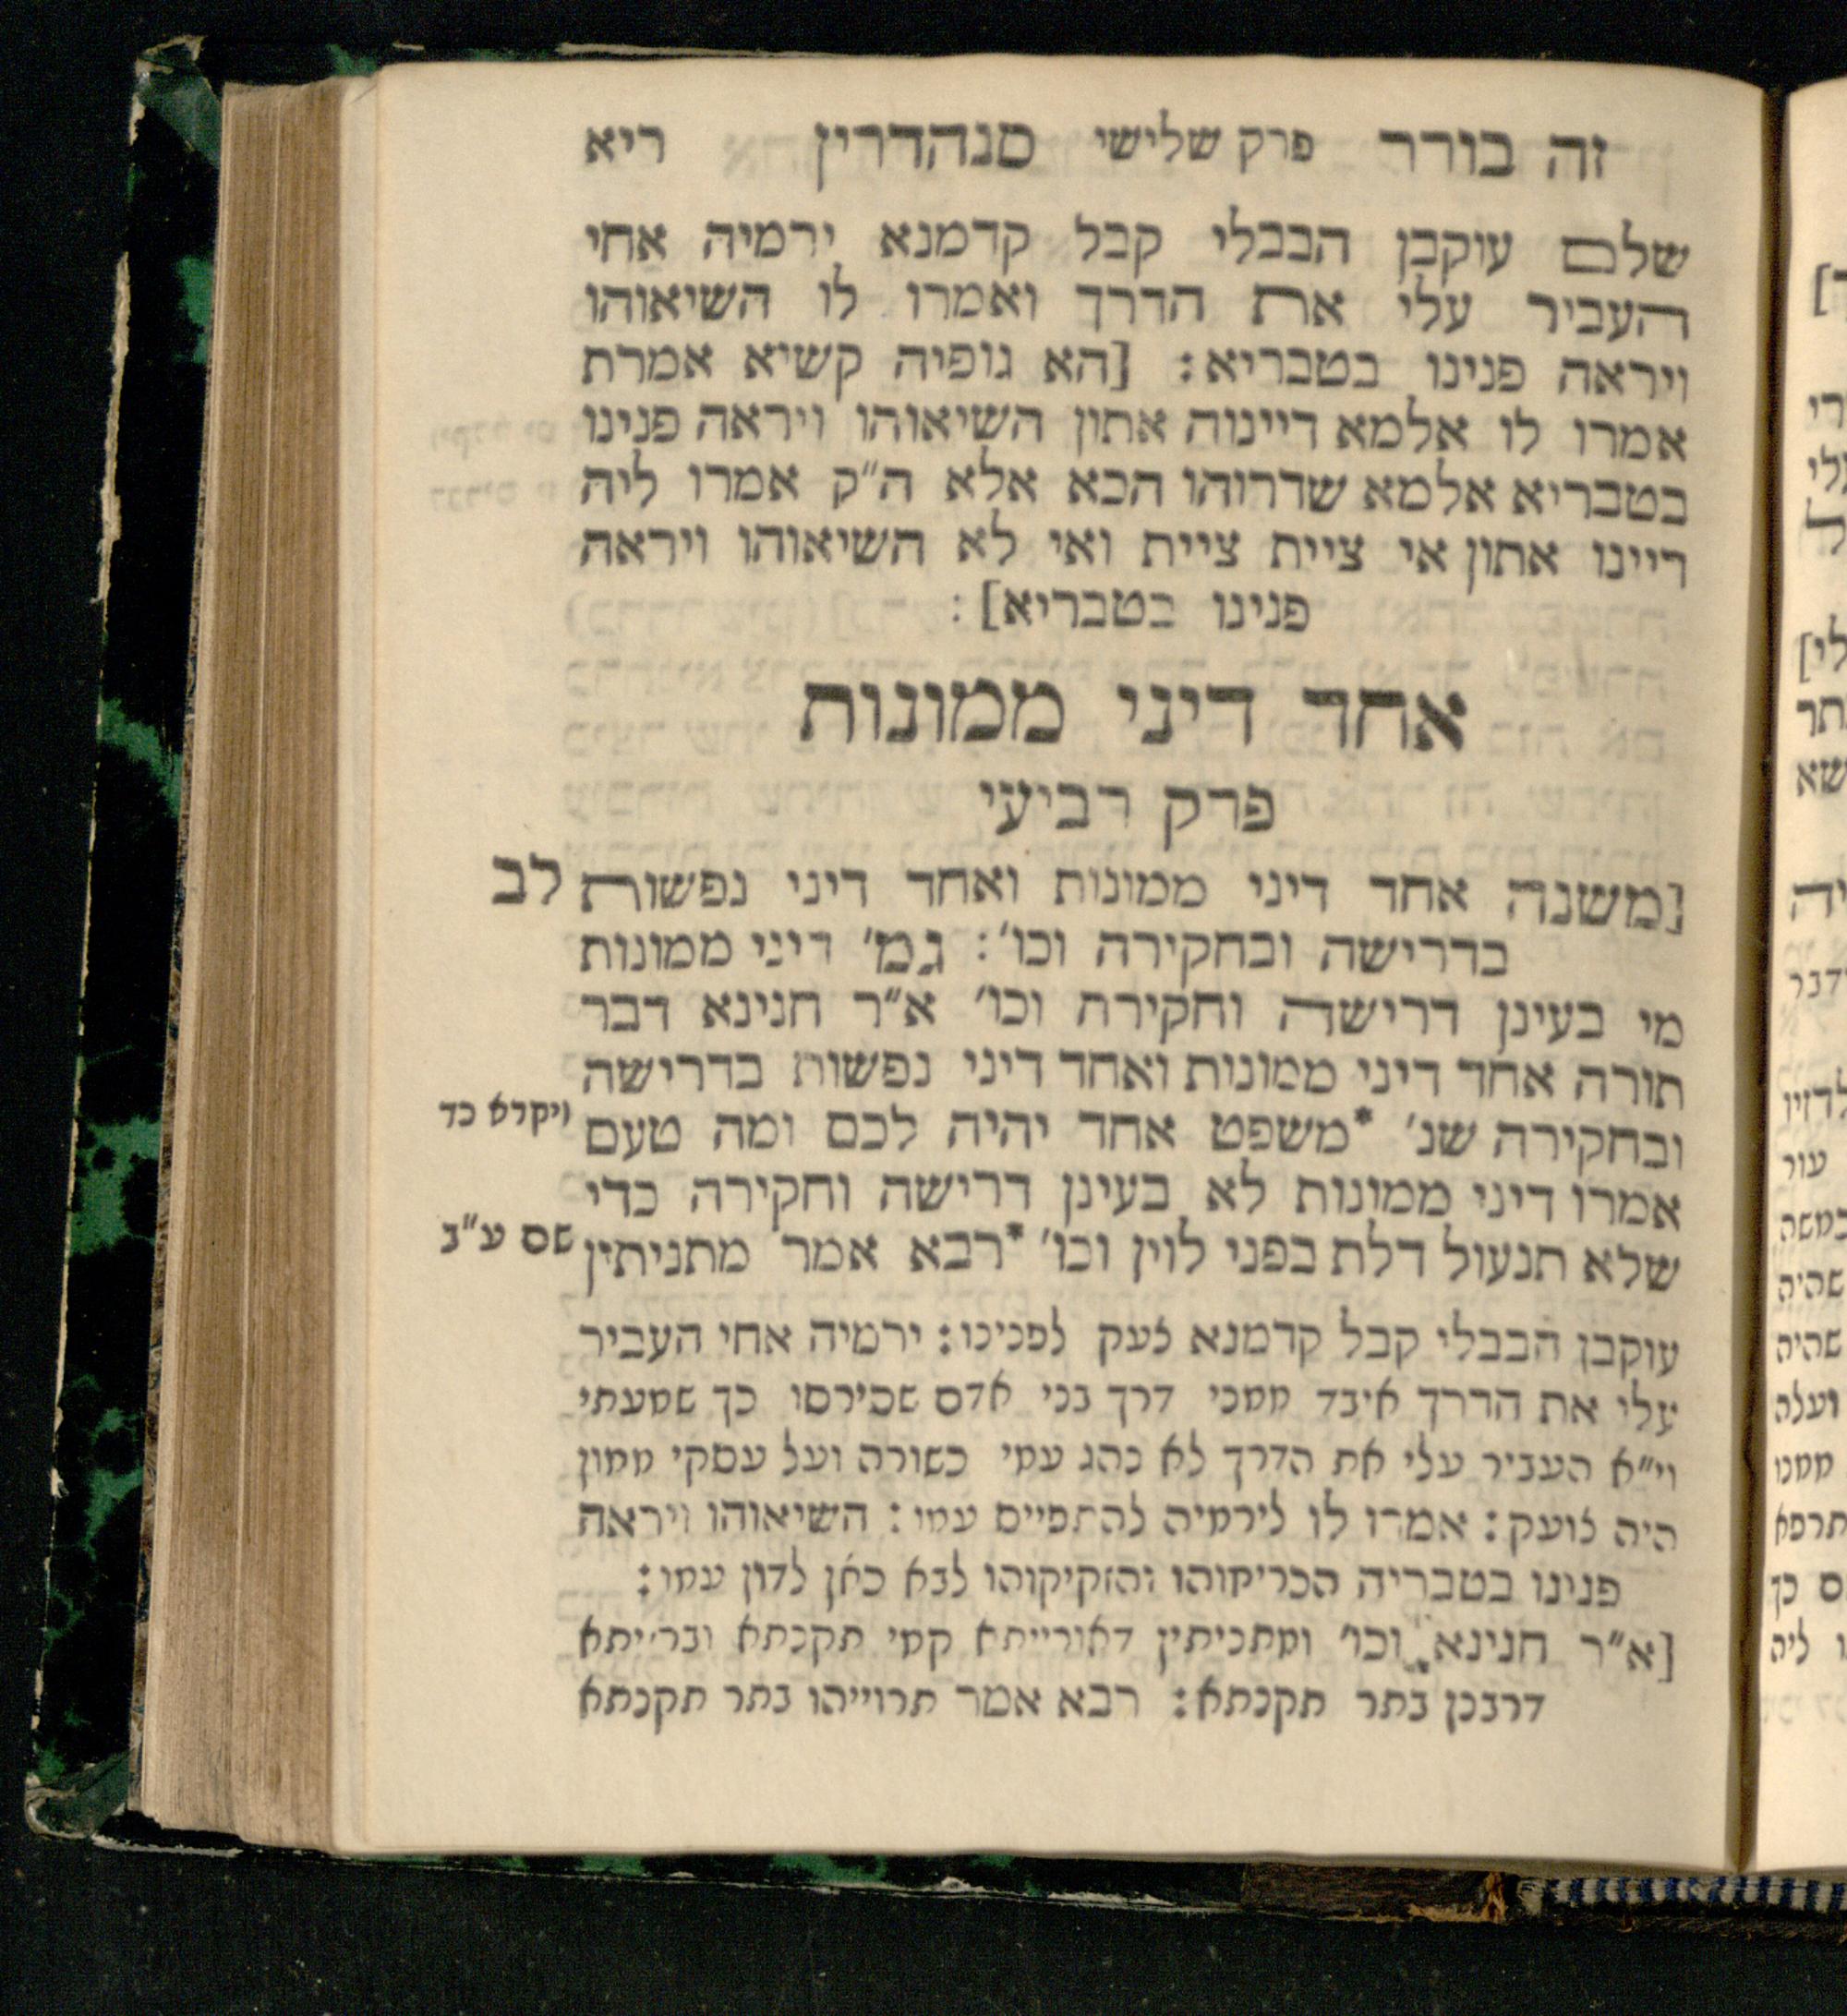 זה בורר פרק שלישי סנהדרין ריא
שלם עוקבן הבבלי קבל קדמנא ירמיה אחי
העביר עלי את הדרך ואמרו לו השיאוהו
ויראה פנינו בטבריא: [הא גופיה קשיא אמרת
אמרו לו אלמא דיינוה אתון השיאוהו ויראה פנינו
בטבריא אלמא שדרוהו הכא אלא ה"ק אמרו ליה
דיינו אתון אי ציית ציית ואי לא השיאוהו ויראה
פנינו בטבריא]:
אחד דיני ממונות
פרק רביעי
[משנה אחד דיני ממונות ואחד דיני נפשות לב
בדרישה ובחקירה וכו': גמ' דיני ממונות
מי בעינן דרישה וחקירה וכו' א"ר חנינא דבר
תורה אחד דיני ממונות ואחד דיני נפשות בדרישה
ובחקירה שנ' *משפט אחד יהיה לכם ומה טעם ויקרא כד
אמרו דיני ממונות לא בעינן דרישה וחקירה כדי
שלא תנעול דלת בפני לוין וכו' *רבא אמר מתניתין שם ע"ב
עוקבן הבבלי קבל קדמנא צעק לפנינו: ירמיה אחי העביר
עלי את הדרך איבד ממני דרך בני אדם שסירסו כך שמעתי
וי"א העביר עלי את הדרך לא נהג עמי כשורה ועל עסקי ממון
היה צועק: אמרו לו לירמיה להתפייס עמו: השיאוהו ויראה
פנינו בטבריה הכריחוהו והזקיקוהו לבא כאן לדון עמו:
[א"ר חנינא וכו' ומתניתין דאורייתא קמי תקנתא וברייתא
דרבנן בתר תקנתא: רבא אמר תרוייהו בתר תקנתא